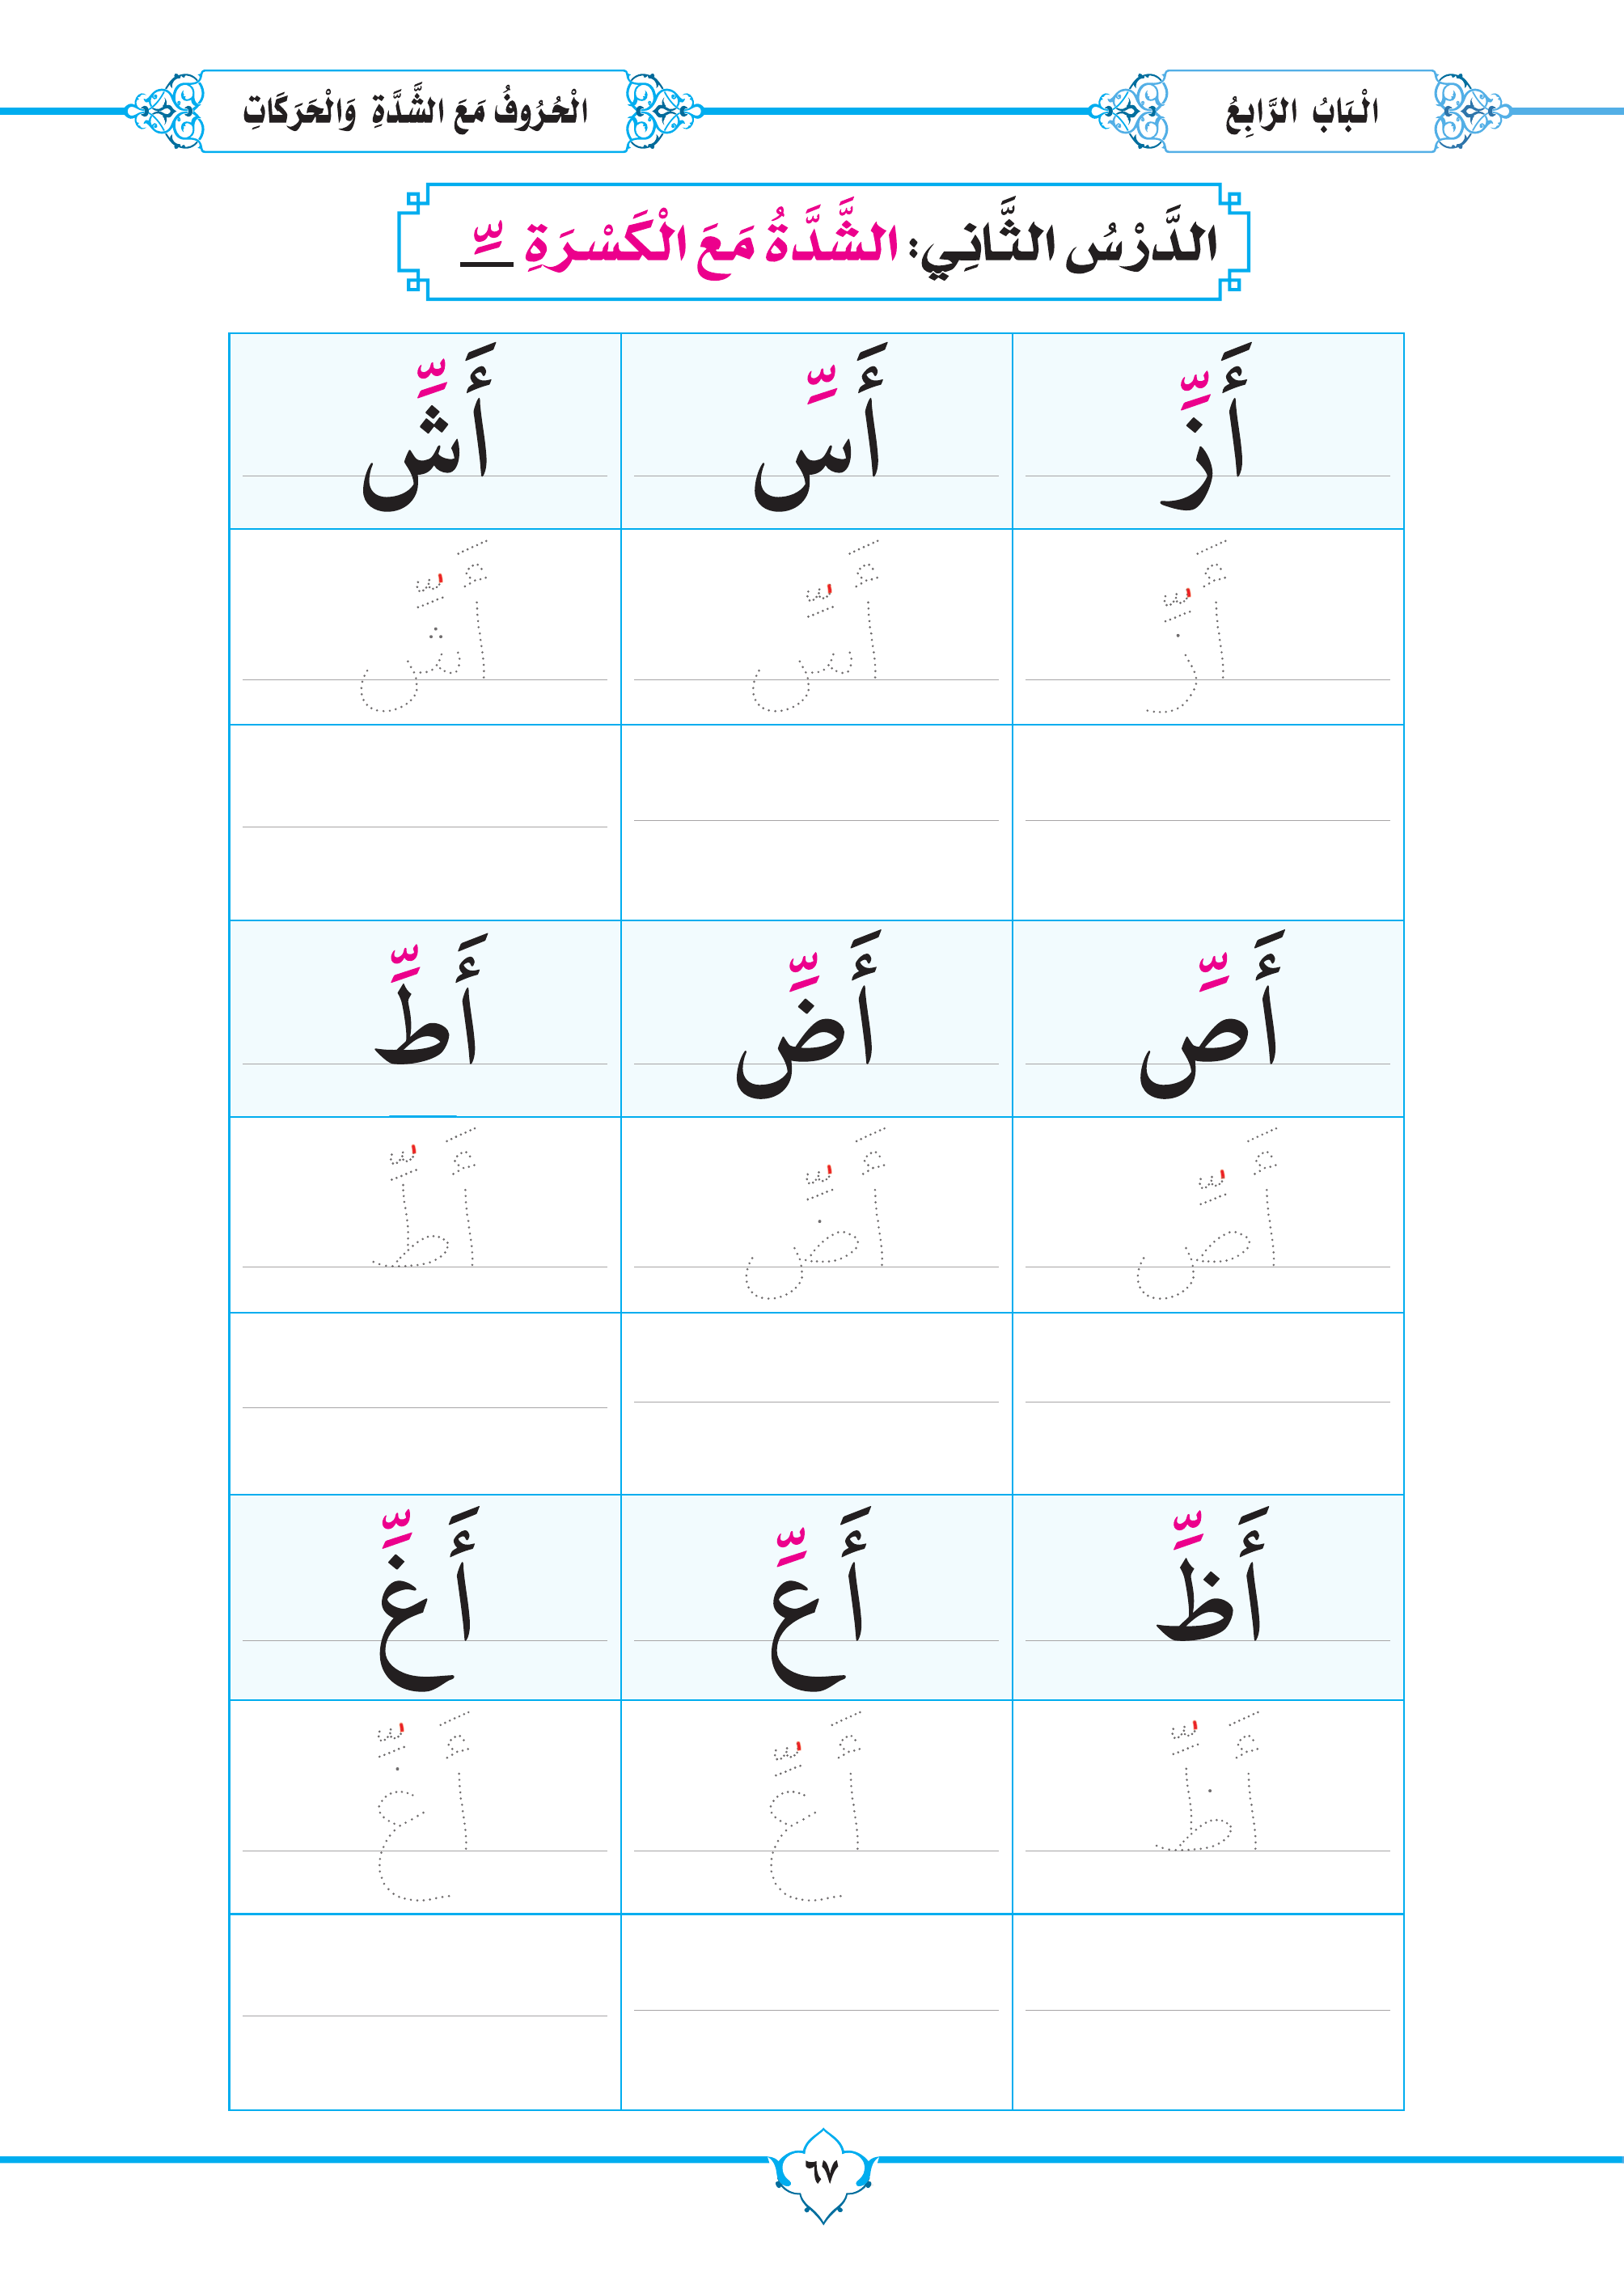 الْبَابُ الرَّابِعُ
الْحُرُوفُ مَعَ الشَّدَّةِ وَالْحَرَكَاتِ
الدَّرْسُ الثَّانِي: الشَّدَّةُ مَعَ الْكَسْرَةِ ـِّ
أَزِّ أَسِّ أَشِّ
أَزِّ أَسِّ أَشِّ
أَصِّ أَضِّ أَطِّ
أَصِّ أَضِّ أَطِّ
أَظِّ أَعِّ أَغِّ
أَظِّ أَعِّ أَغِّ
٦٧